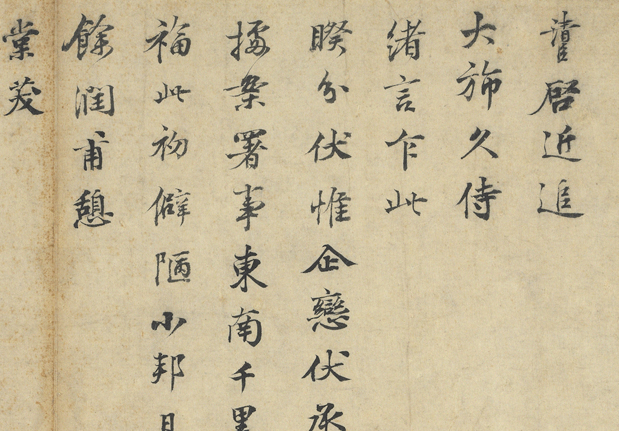 清啓近追
大旆久侍
緒言乍此
睽分伏惟企戀伏承
據案署事東南千里
福此初僻陋小邦日
餘潤甫憩
棠茇